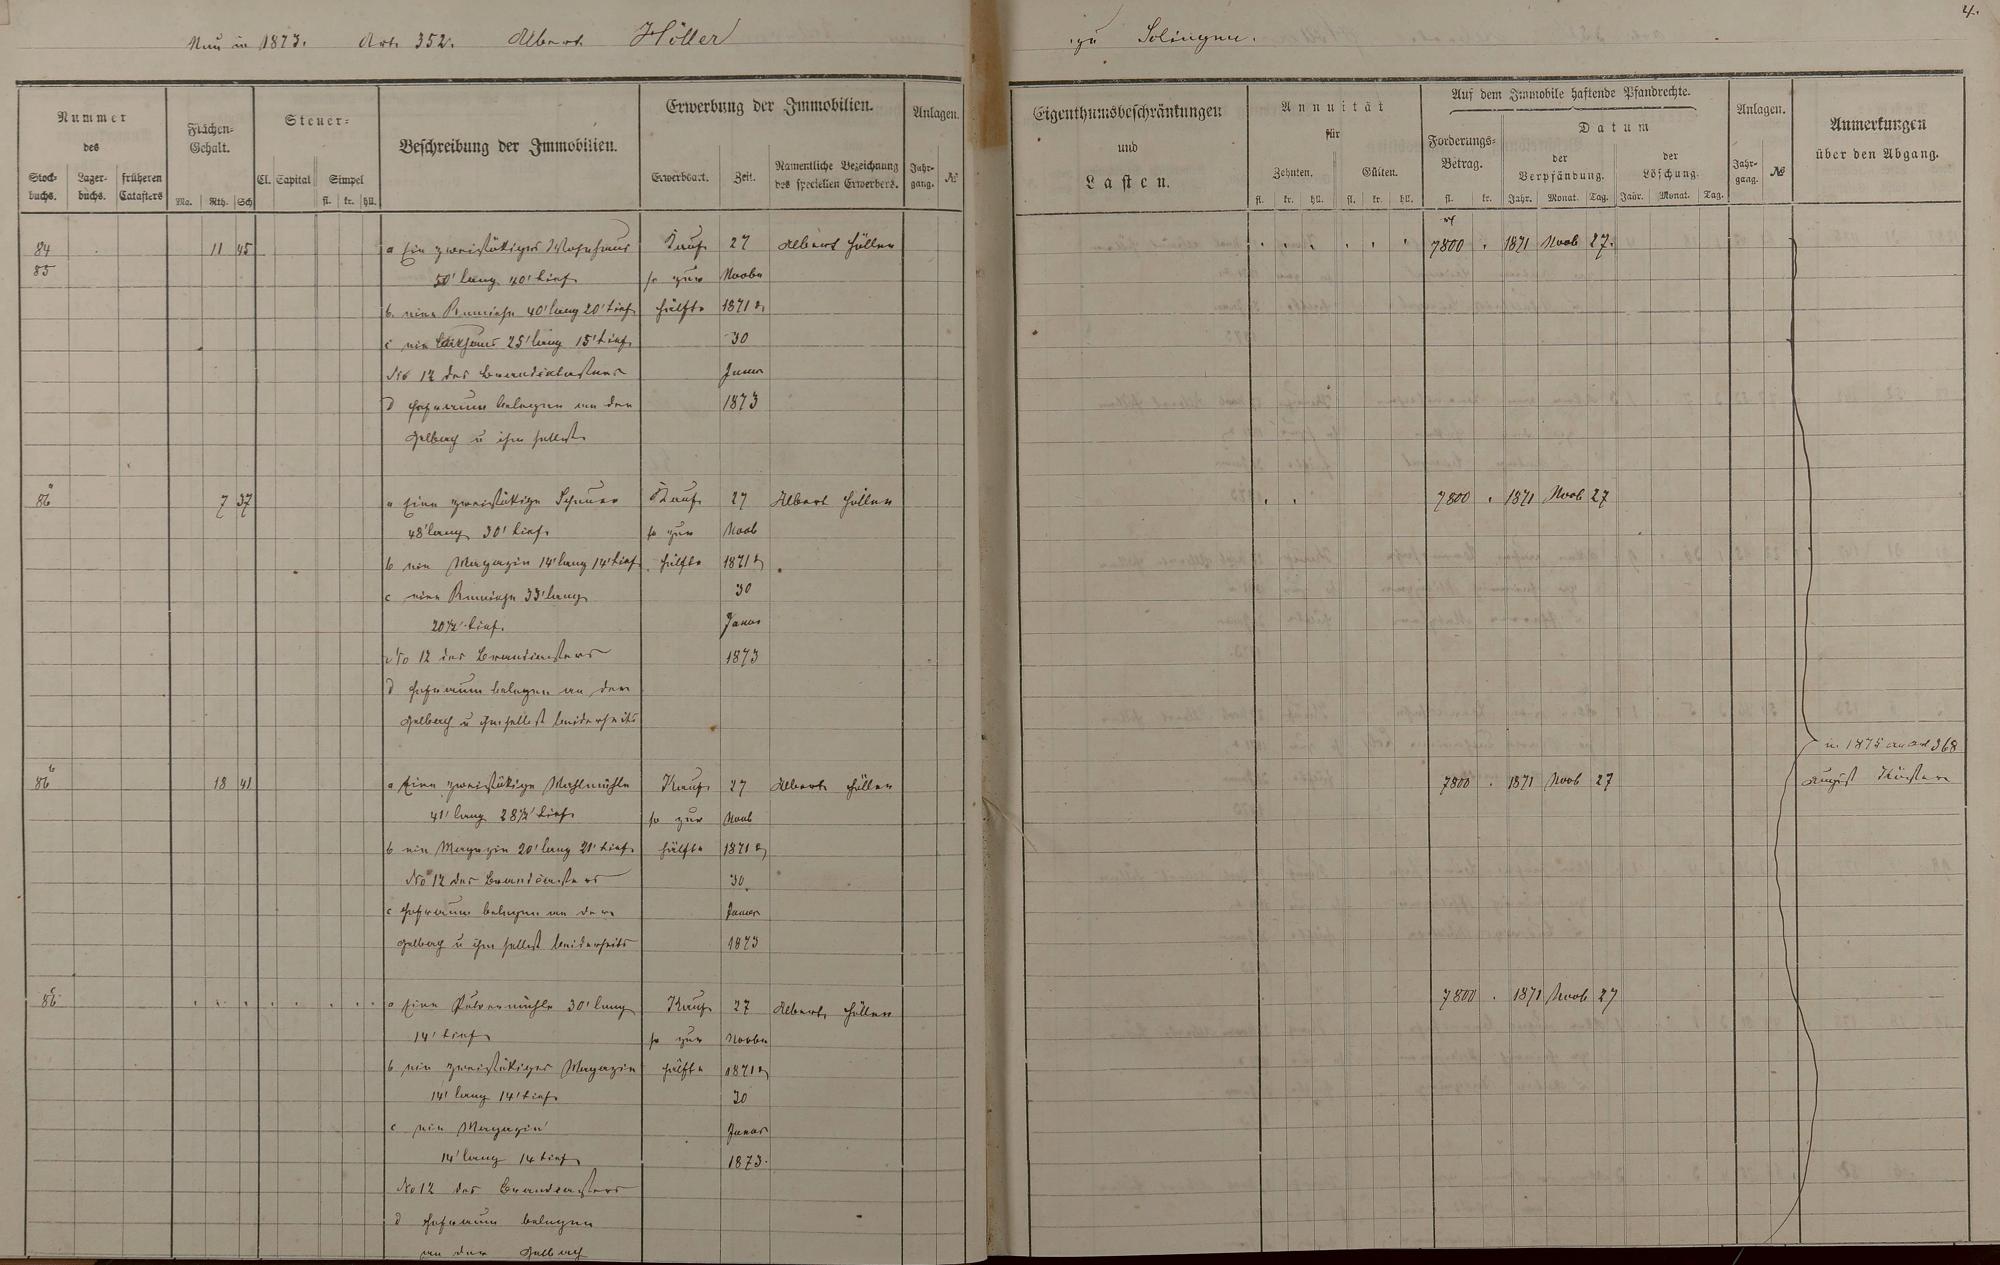 Neu in 1873. Art. 352. Albert Höller
zu Solingen.
4.
Nummer
des
Stock-
buchs.
Lager-
buchs.
früheren
Catasters
Flächen-
Gehalt.
Mo. Rth. Sch
Steuer-
Cl. Capital Simpel
fl. kr. hll.
Beschreibung der Immobilien.
Erwerbung der Immobilien.
Erwerbsart. Zeit.
Namentliche Bezeichnung
des speciellen Erwerbers.
Anlagen.
Jahr-
gang. №
Eigenthumsbeschränkungen
und
Lasten.
Annuität
für
Zehnten. Gülten.
fl. kr. hll. fl. kr. hll.
Auf dem Immobile haftende Pfandrechte.
Forderungs-
Betrag.
fl. kr.
Datum
der
Verpfändung.
Jahr. Monat. Tag.
der
Löschung.
Jahr. Monat. Tag.
Anlagen.
Jahr-
gang. №
Anmerkungen
über den Abgang.
84 11 45 a Ein zweistökiges Wohnhaus Kauf 27 Albert Höller 7800 1871 Novb 27.
85 50' lang 40' tief zur Novbr
b. eine Remiehse 40' lang 20' tief Hälfte 1871 &
c ein Backhaus 25' lang 15' tief 30
No 12 des Brandcatasters Januar
d Hofraum belegen an der 1873
Gelbach u ihm selbst
86 a 7 37 a Eine zweistökige Scheuer Kauf 27 Albert Höller 7800 1871 Novb 27
48' lang 30' tief zur Novb
b ein Magazin 14' lang 14' tief Hälfte 1871 &
c eine Remiehse 33' lang 30
20½' tief. Januar
No 12 des Brandcasters 1873
d Hofraum belegen an der
Gelbach u ihm selbst beiderseits
in 1875 an Art 368
86 b 18 41 a Eine zweistökige Mahlmühle Kauf 27 Albert Höller 7800 1871 Novb 27 August Küster
41' lang 28½' tief zur Novb
b ein Magazin 20' lang 21' tief Hälfte 1871 &
No 12 des Brandcasters 30
c Hofraum belegen an der Januar
Gelbach u ihm selbst beiderseits 1873
86 c a Eine Pulvermühle 30' lang Kauf 27 Albert Höller 7800 1871 Novb 27
14' tief zur Novbr
b ein zweistökiges Magazin Hälfte 1871 &
14' lang 14' tief 30
c ein Magazin Januar
14' lang 14 tief 1873.
No 12 des Brandcasters
d Hofraum belegen
an der Gelbach